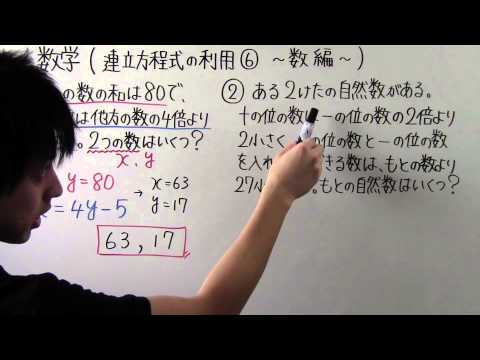 数学(連立方程式の利用⑥ ~数編~)
の数の和は80で、
は他方の数の4倍より
。2つの数はいくつ?
x、y
y=80
=4y-5
→ x=63
y=17
63,17
② ある2けたの自然数がある。
十の位の数は一の位の数の2倍より
2小さく、の位の数と一の位の数
を入れきる数は、もとの数より
27小。もとの自然数はいくつ?